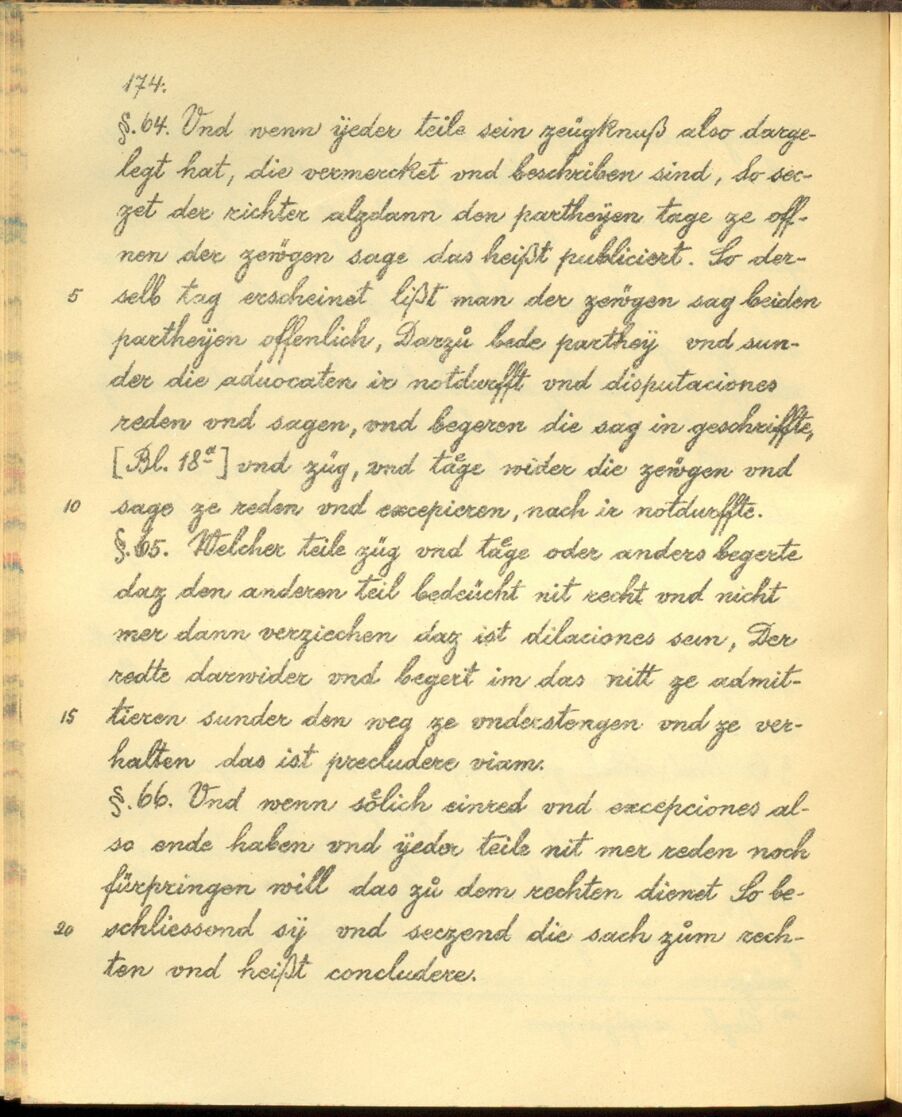 174.
§. 64. Vnd wenn ÿeder teile sein zeügknuß also darge-
legt hat, die vermercket vnd beschriben sind, So sec-
zet der richter alzdann den partheÿen tage ze off-
nen der zewgen sage das heißt publiciert. So der-
5 selb tag erscheinet lißt man der zewgen sag beiden
partheÿen offenlich, Darzů bede parthey vnd sun-
der die aduocaten ir notdurfft vnd disputaciones
reden vnd sagen, vnd begeren die sag in geschriffte,
[Bl. 18ª] vnd züg, vnd täge wider die zewgen vnd
10 sage ze reden vnd excepieren, nach ir notdurffte.
§. 65. Welcher teile züg vnd tåge oder anders begerte
daz den anderen teil bedeücht nit recht vnd nicht
mer dann verziechen daz ist dilaciones sein, Der
redte darwider vnd begert im das nitt ze admit-
15 tieren sunder den weg ze vnderstengen vnd ze ver-
halten das ist precludere viam.
§. 66. Vnd wenn sölich einred vnd excepciones al-
so ende haben vnd ÿeder teile nit mer reden noch
fürpringen will das zů dem rechten dienet So be-
20 schliessend sÿ vnd seczend die sach zům rech-
ten vnd heißt concludere.